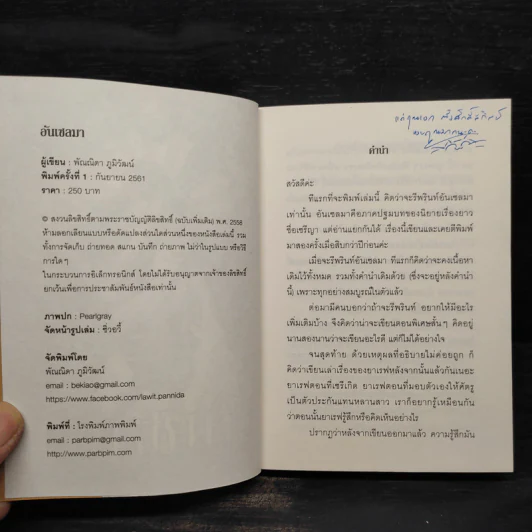 อันเซลมา
ผู้เขียน : พัณณิดา ภูมิวัฒน์
พิมพ์ครั้งที่ 1 : กันยายน 2561
ราคา : 250 บาท
© สงวนลิขสิทธิ์ตามพระราชบัญญัติลิขสิทธิ์ (ฉบับเพิ่มเติม) พ.ศ. 2558
ห้ามลอกเลียนแบบหรือดัดแปลงส่วนใดส่วนหนึ่งของหนังสือเล่มนี้ รวม
ทั้งการจัดเก็บ ถ่ายทอด สแกน บันทึก ถ่ายภาพ ไม่ว่าในรูปแบบ หรือวิธี
การใดๆ
ในกระบวนการอิเล็กทรอนิกส์ โดยไม่ได้รับอนุญาตจากเจ้าของลิขสิทธิ์
ยกเว้นเพื่อการประชาสัมพันธ์หนังสือเท่านั้น
ภาพปก : Pearlgray
จัดหน้ารูปเล่ม : ชีวอวี้
จัดพิมพ์โดย
พัณณิดา ภูมิวัฒน์
email : bekiao@gmail.com
https://www.facebook.com/lawit.pannida
พิมพ์ที่ : โรงพิมพ์ภาพพิมพ์
email : parbpim@gmail.com
http://www.parbpim.com
คำนำ
สวัสดีค่ะ
ทีแรกที่จะพิมพ์เล่มนี้ คิดว่าจะรีพรินท์อันเซลมา
เท่านั้น อันเซลมาคือภาคปฐมบทของนิยายเรื่องยาว
ชื่อเซรีญา แต่อ่านแยกกันได้ เรื่องนี้เขียนและเคยตีพิมพ์
มาสองครั้งเมื่อสิบกว่าปีก่อนค่ะ
เมื่อจะรีพรินท์อันเซลมา ทีแรกก็คิดว่าจะคงเนื้อหา
เดิมไว้ทั้งหมด รวมทั้งคำนำเดิมด้วย (ซึ่งจะอยู่หลังคำนำ
นี้) เพราะทุกอย่างสมบูรณ์ในตัวแล้ว
ต่อมามีคนบอกว่าถ้าจะรีพรินท์ อยากให้มีอะไร
เพิ่มเติมบ้าง จึงคิดว่าน่าจะเขียนตอนพิเศษสั้นๆ คิดอยู่
นานสองนานว่าจะเขียนอะไรดี แต่ก็ไม่ได้อย่างใจ
จนสุดท้าย ด้วยเหตุผลที่อธิบายไม่ค่อยถูก ก็
คิดว่าจะเขียนเล่าเรื่องของยาเรฟหลังจากนั้นแล้วกันเนอะ
ยาเรฟตอนที่เซรีเกิด ยาเรฟตอนที่มอบตัวเองให้ศัตรู
เป็นตัวประกันแทนหลานสาว เราก็อยากรู้เหมือนกัน
ว่าตอนนั้นยาเรฟรู้สึกหรือคิดเห็นอย่างไร
ปรากฏว่าหลังจากเขียนออกมาแล้ว ความรู้สึกมัน